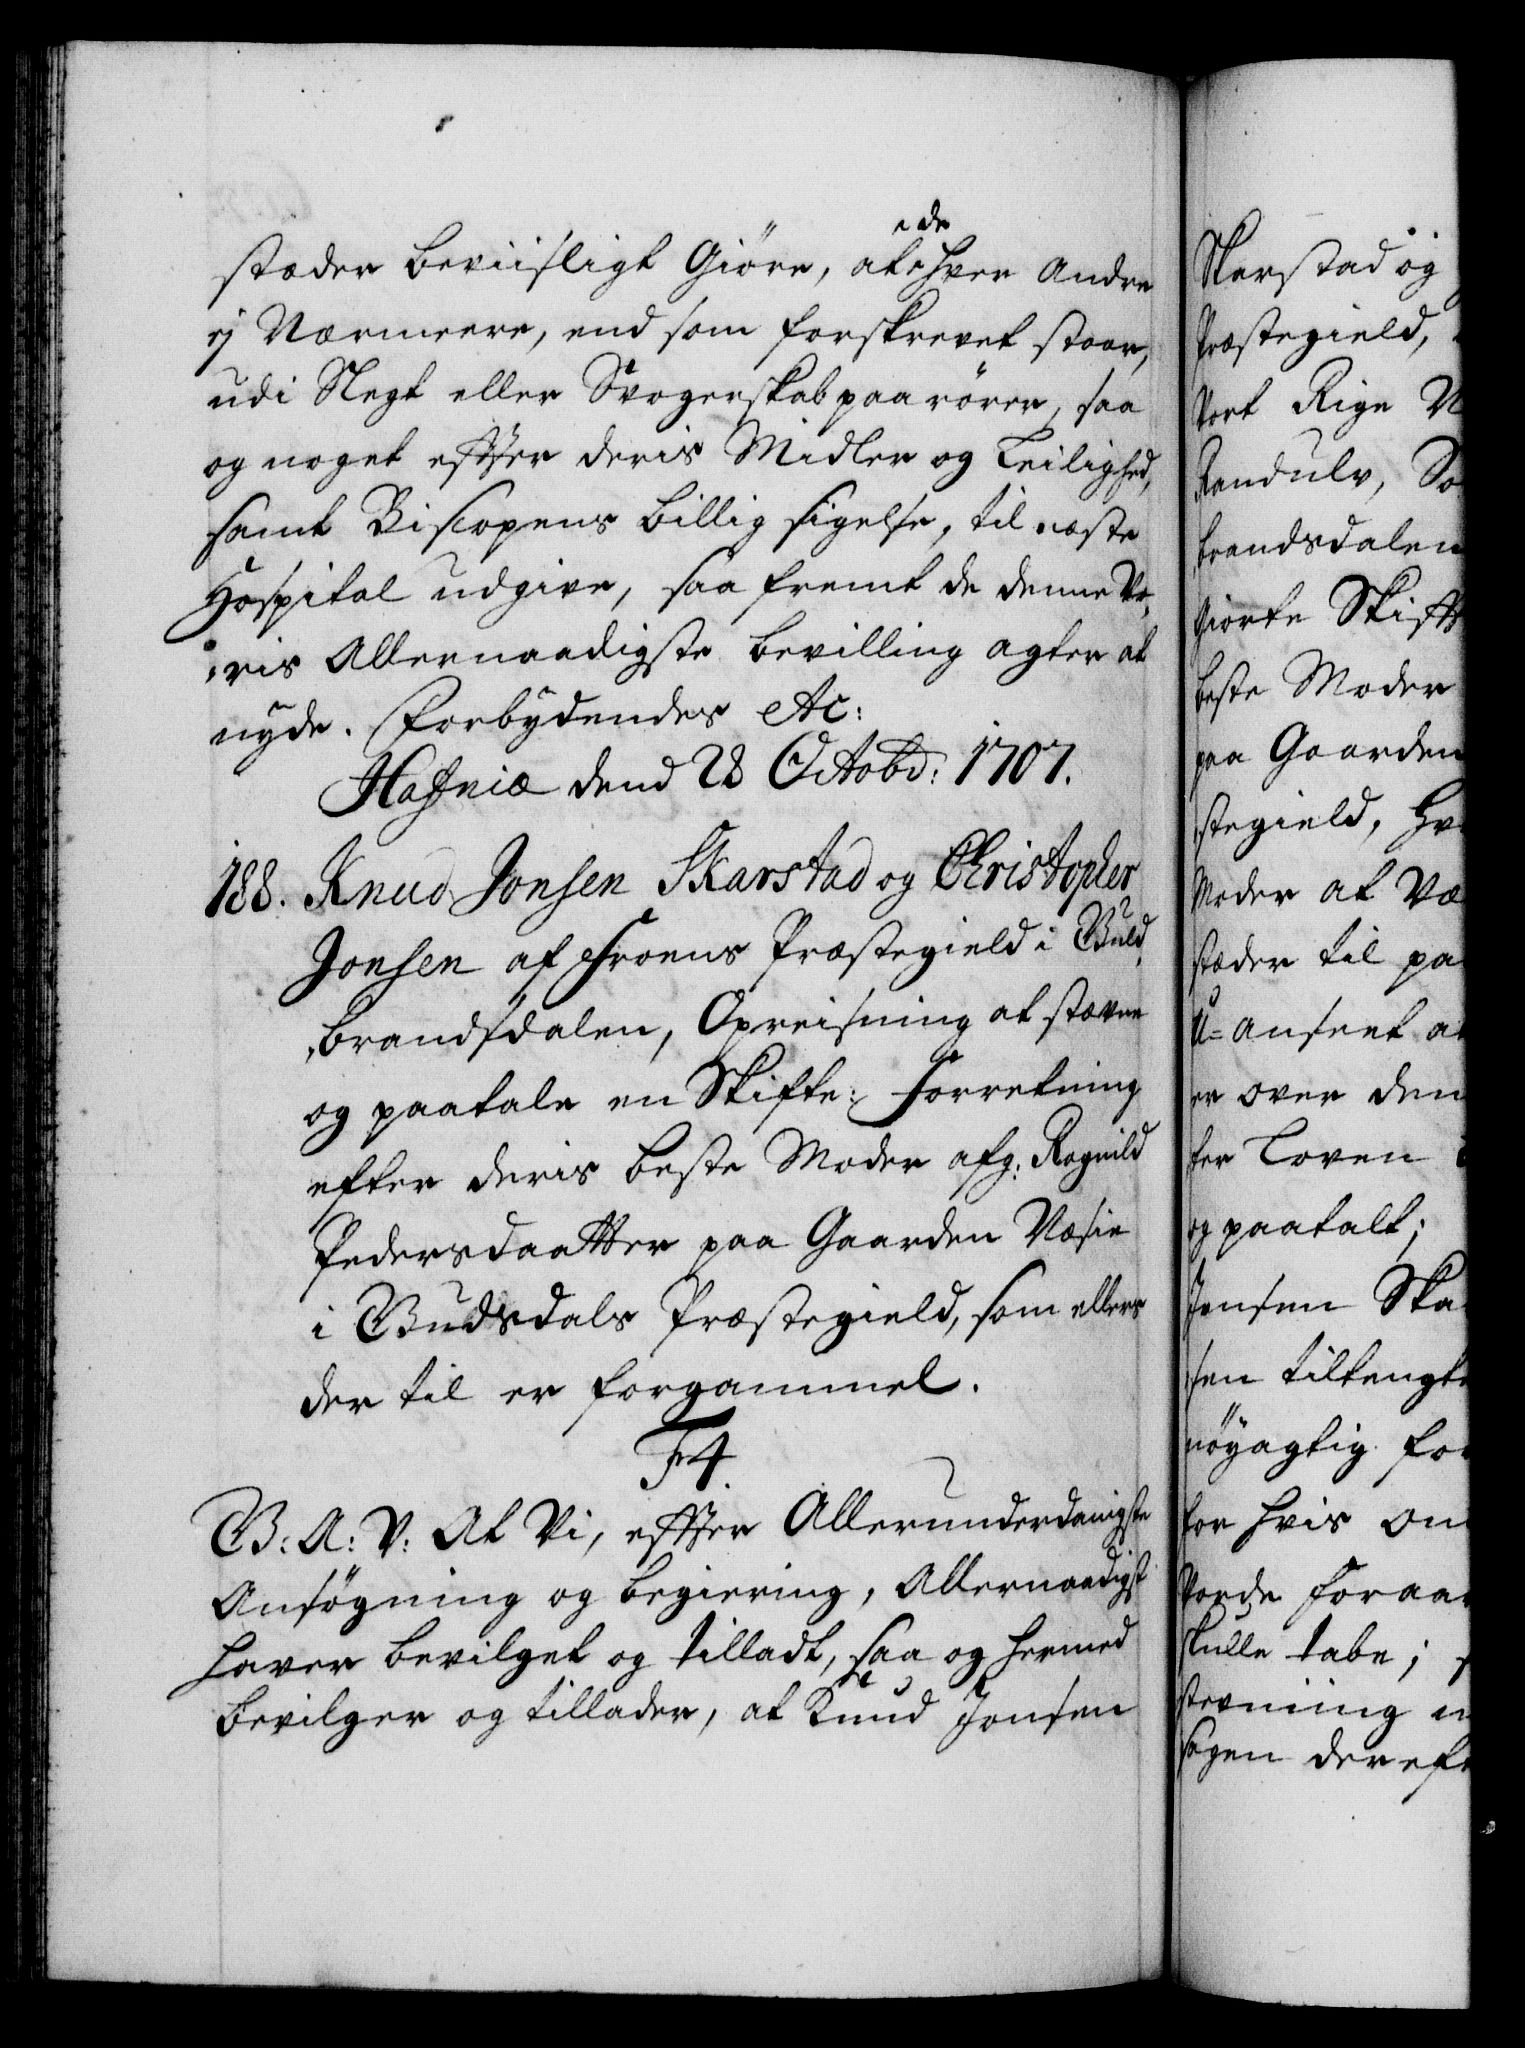 stæder beviisligt Giöre, at de hver andre
ej Nærmeere, end som forskrevet staar,
udi Slegt eller Svogerskab paarörer, saa
og noget effter deris Midler og Leilighed,
samt Biscopens billig sigelse, til næste
Hospital udgive, saa fremt de denne Vo,
,ris Allernaadigste bevilling agter at
nyde. Forbydendes etc:
Hafniæ dend 28 Octobr: 1707.
188. Knud Jonsen Skarstad og Christopher
Jonsen af Froens Præstegield i Guld,
,brandsdalen, Opreisning at stævne
og paatale en Skifte: Forretning
efter deris beste Moder afg: Rognild
Pedersdaatter paa Gaarden Næsie
i Gudsdals Præstegield, som ellers
der til er forgammel.
F4.
G: A: V: At Vi, effter Allerunderdanigste
Ansögning og begiering, Allernaadigst
haver bevilget og tilladt, saa og hermed
bevilger og tillader, at Knud Jonsen
Skarstad og
Præstegield,
Vort Rige N
Randulv, So
brandsdalen
giorte Skifft
beste Moder
paa Gaarden
stegield, hv
Moder at Væ
stæder til pa
U=anseet at
er over den
ter Loven
og paatalt;
Jonsen Ska
sen tiltengte
nöyagtig for
for hvis om
Vorde foraar
skulle tabe;
stevniing i
sagen der eft